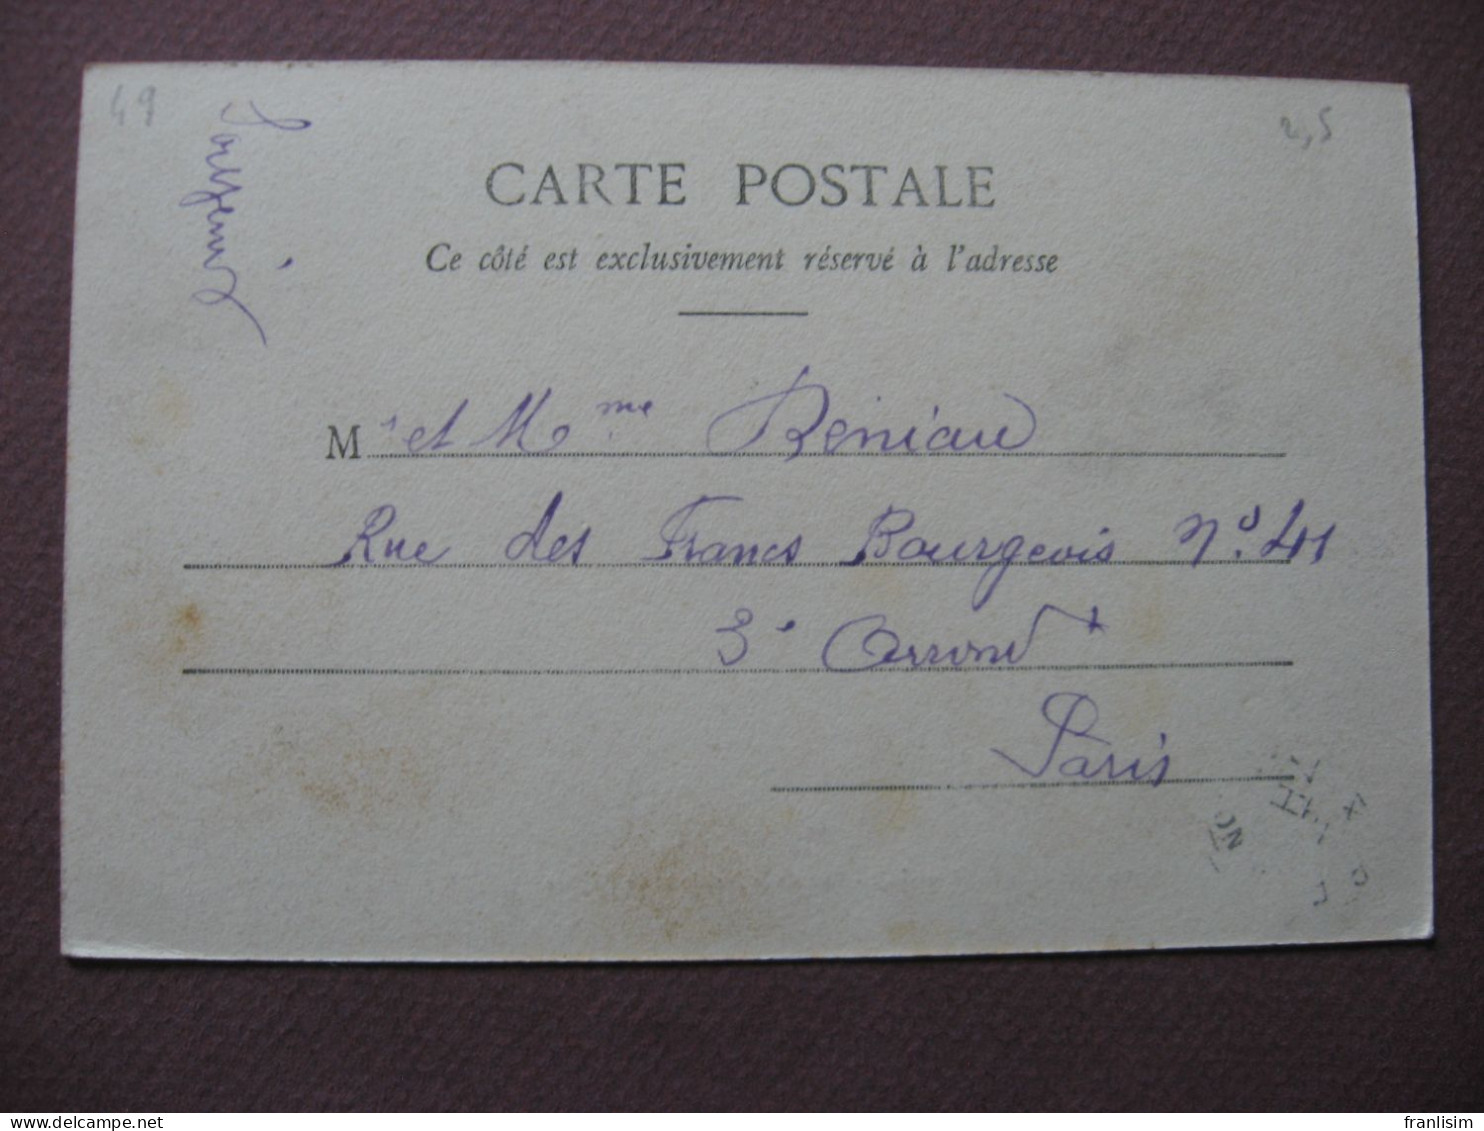 49
2,5
CARTE POSTALE
Ce côté est exclusivement réservé à l'adresse
M r et Mme Beniau
Rue des Francs Bourgeois No. 41
3e Arrondt
Paris
delcampe.net
franlisim